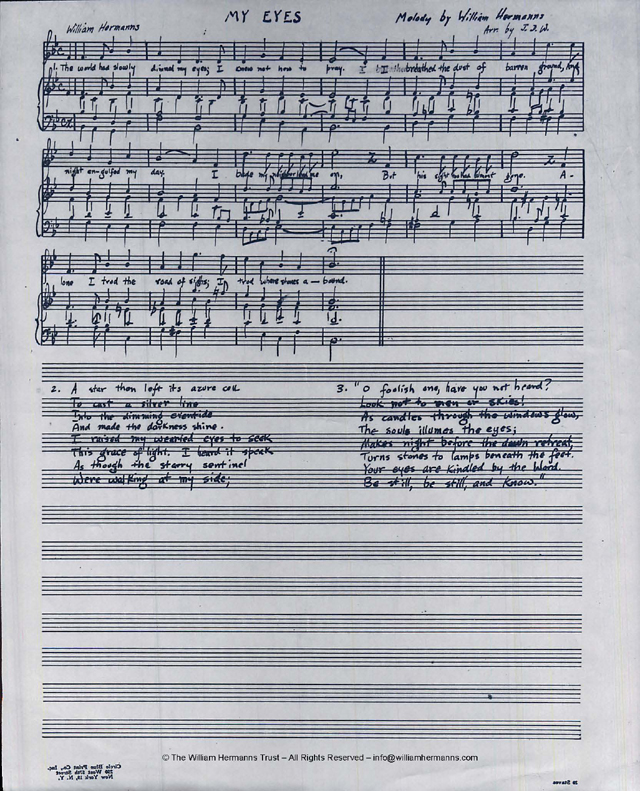 MY EYES
William Hermanns
Melody by William Hermanns
Arr. by I.D.W.
1. The world had slowly dimmed my eyes; I knew not how to pray. I breathed the dust of barren ground, And
night en-gulfed my day. I bade my on, But his gone. A-
lone I trod the road of sighs; I trod where stones a-bound.
2. A star then left its azure cell
To cast a silver line
Into the dimming eventide
And made the darkness shine.
I raised my wearied eyes to seek
This grace of light. I heard it speak
As though the starry sentinel
Were walking at my side;
3. "O foolish one, have you not heard?
Look not to men or skies!
As candles through the windows glow,
The souls illumes the eyes;
Makes night before the dawn retreat,
Turns stones to lamps beneath the feet.
Your eyes are kindled by the Word.
Be still, be still, and know."
© The William Hermanns Trust – All Rights Reserved – info@williamhermanns.com
Circle Blue Print Co., Inc.
225 West 57th Street
New York 19, N. Y.
20 Staves